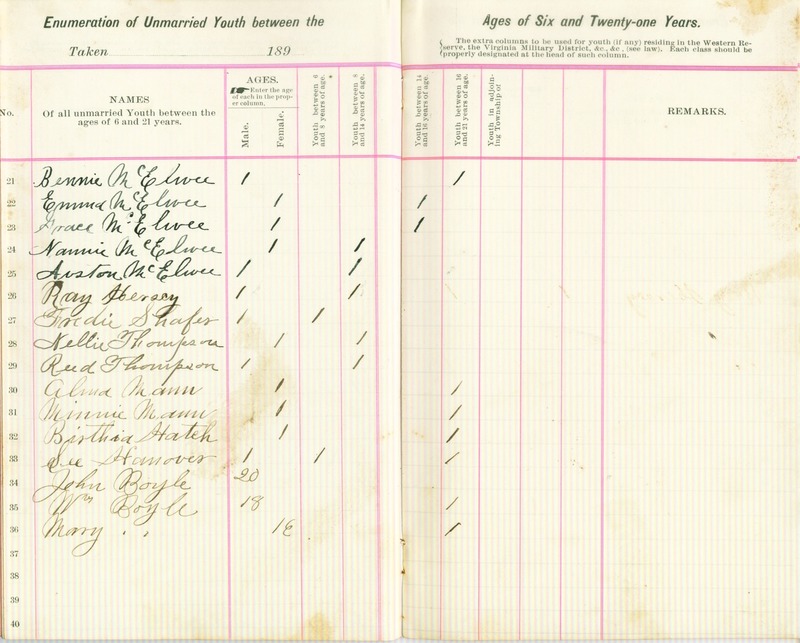 Enumeration of Unmarried Youth between the
Ages of Six and Twenty-one Years.
Taken 189
The extra columns to be used for youth (if any) residing in the Western Re-
serve, the Virginia Military District, &c., &c., (see law). Each class should be
properly designated at the head of such column.
No.
NAMES
Of all unmarried Youth between the
ages of 6 and 21 years.
AGES.
Enter the age
of each in the prop-
er column.
Male.
Female.
Youth between 6
and 8 years of age.
Youth between 8
and 14 years of age.
Youth between 14
and 16 years of age.
Youth between 16
and 21 years of age.
Youth in adjoin-
ing Township of
REMARKS.
21 Bennie McElwee 1 1
22 Emma McElwee 1 1
23 Grace McElwee 1 1
24 Nannie McElwee 1 1
25 Avston McElwee 1 1
26 Ray Hersey 1 1
27 Fredie Shafer 1 1
28 Nellie Thompson 1 1
29 Reed Thompson 1 1
30 Alma Mann 1 1
31 Minnie Mann 1 1
32 Birthia Hatch 1 1
33 Hanover 1 1 1
34 John Boyle 20
35 Wm Boyle 18 1
36 Mary " 1
37
38
39
40